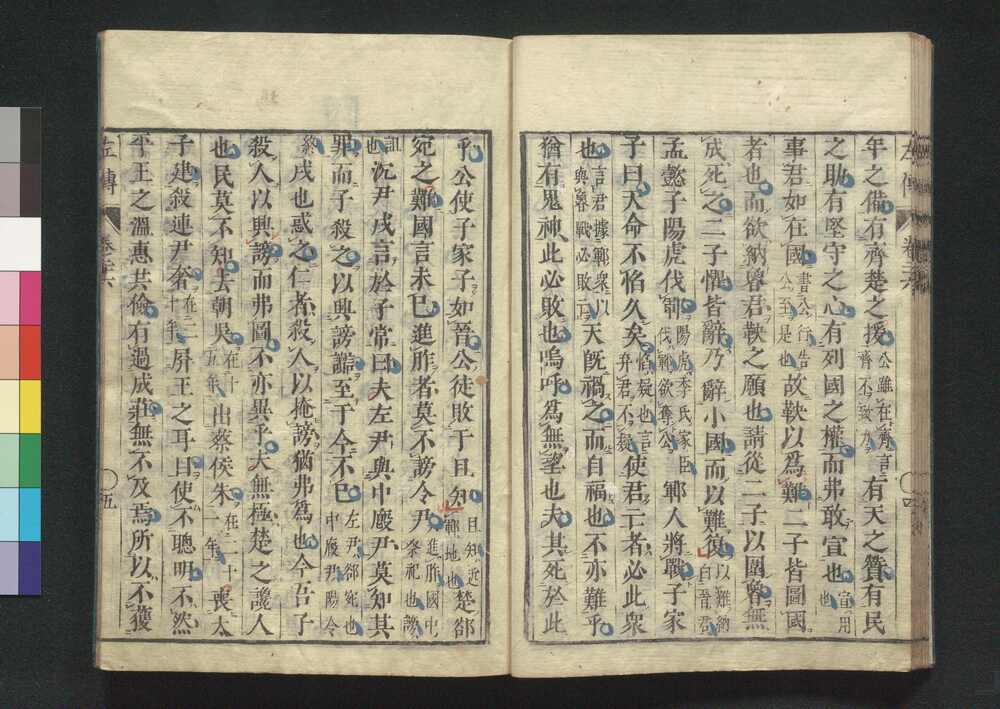 左傳　卷二十六　四
年之備有齊楚之援公雖在齊言齊不致力有天之贊有民
之助有堅守之心有列國之權而弗敢宣也宣用也
事君如在國書公行告公至是也故鞅以爲難二子皆圖國
者也而欲納魯君鞅之願也請從二子以圍魯無
成死之二子懼皆辭乃辭小國而以難復以難納白晉君
孟懿子陽虎伐鄆陽虎季氏家臣伐鄆欲奪公鄆人將戰子家
子曰天命不慆久矣慆疑也言棄君不疑使君亡者必此衆
也言君據鄆衆以與魯戰必敗亡天旣禍之而自福也不亦難乎
猶有鬼神此必敗也嗚呼爲無望也夫其死於此
乎公使子家子如晉公徒敗于且知且知近鄆地也楚郤
宛之難國言未已進胙者莫不謗令尹進胙國中祭祀也謗
詛也沈尹戌言於子常曰夫左尹與中廏尹莫知其
罪而子殺之以興謗讟至于今不已左尹郤宛也中廏尹陽令
終戌也惑之仁者殺人以掩謗猶弗爲也今吾子
殺人以興謗而弗圖不亦異乎夫無極楚之讒人
也民莫不知去朝吳在十五年出蔡侯朱在二十一年喪太
子建殺連尹奢在二十年屏王之耳目使不聰明不然
平王之溫惠共儉有過成莊無不及焉所以不獲
左傳　卷二十六　五